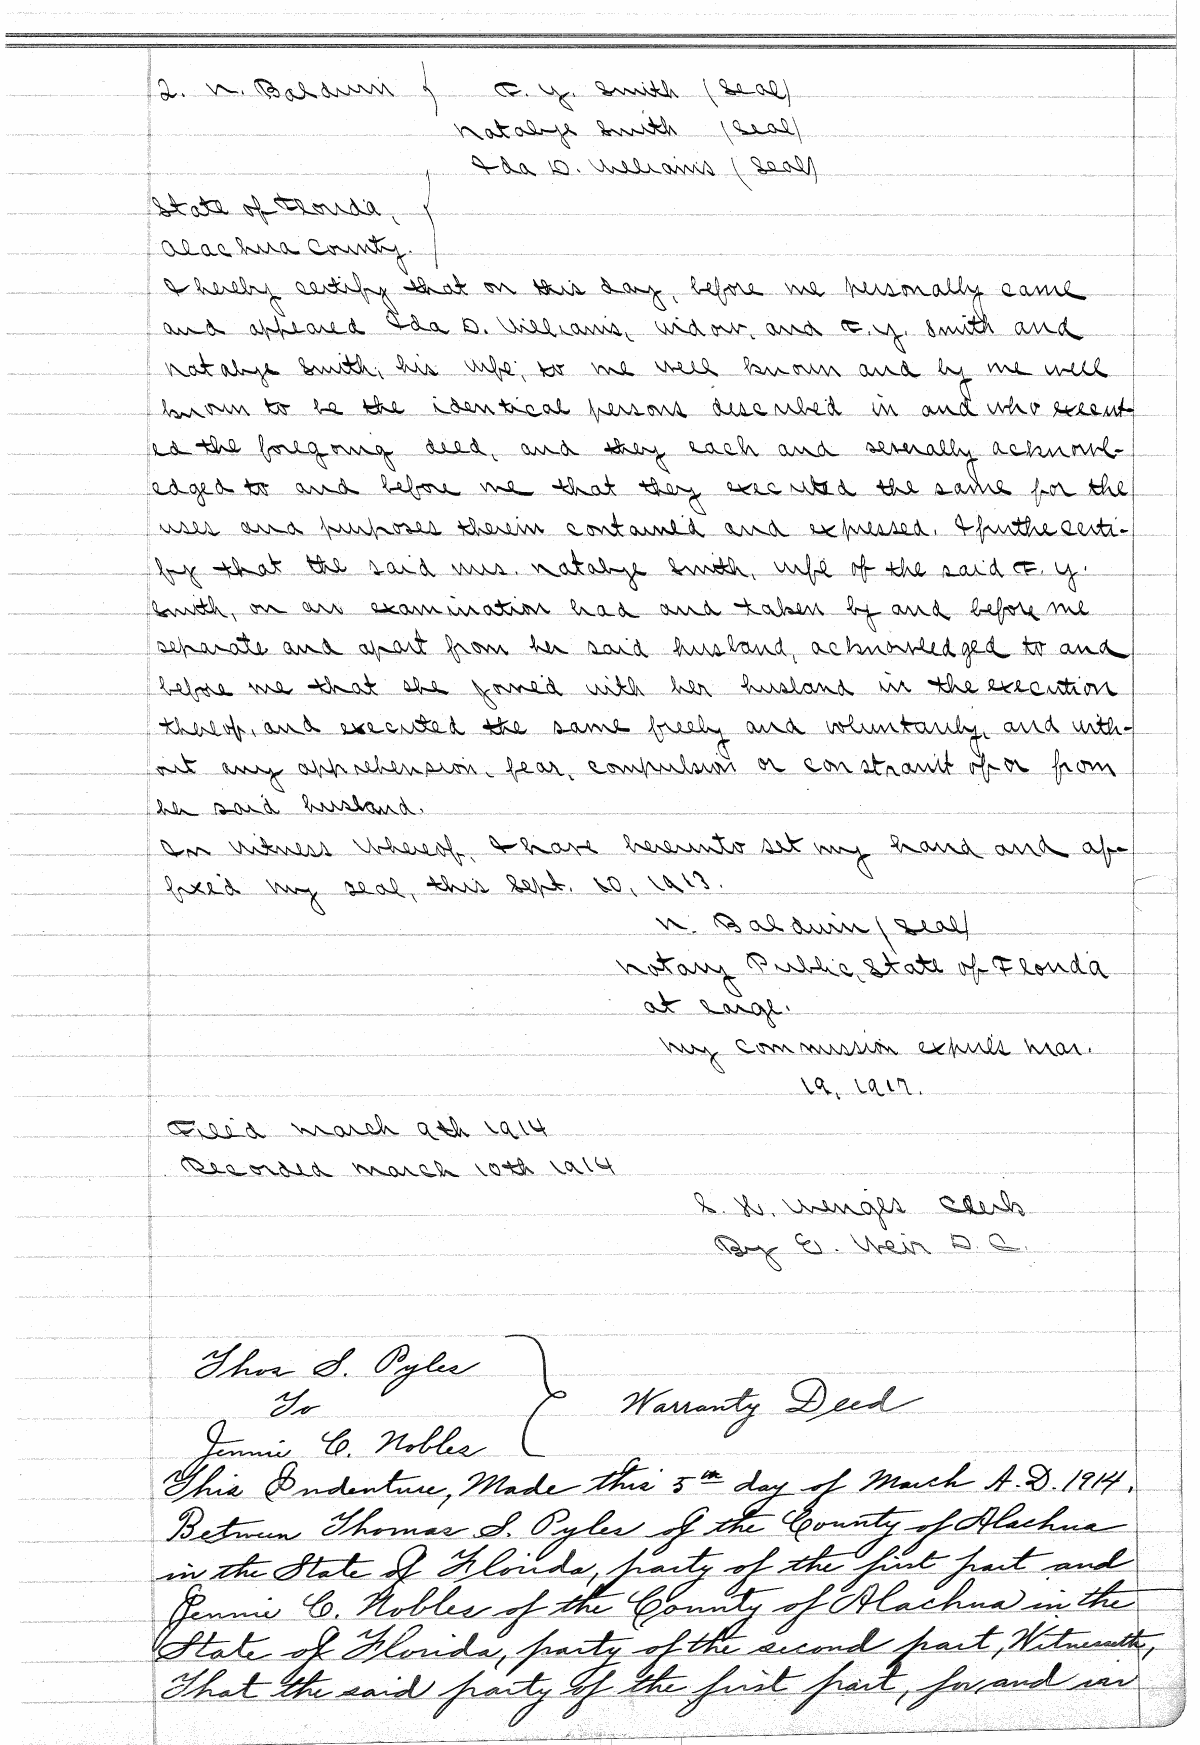 2. N. Baldwin } F. Y. Smith (Seal)
Natalye Smith (Seal)
Ida D. Williams (Seal)
State of Florida, }
Alachua County.
I hereby certify that on this day, before me personally came
and appeared Ida D. Williams, widow, and F. Y. Smith and
Natalye Smith, his wife, to me well known and by me well
known to be the identical persons described in and who execut-
ed the foregoing deed, and they each and severally acknowl-
edged to and before me that they executed the same for the
uses and purposes therein contained and expressed. I furthe certi-
fy that the said Mrs. Natalye Smith, wife of the said F. Y.
Smith, on an examination had and taken by and before me
separate and apart from her said husband, acknowledged to and
before me that she joined with her husband in the execution
thereof, and executed the same freely and voluntarily, and with-
out any apprehension, fear, compulsion or constraint of or from
her said husband.
In Witness Whereof, I have hereunto set my hand and af-
fixed my seal, this Sept. 10, 1913.
N. Baldwin (Seal)
Notary Public, State of Florida
at large.
My commission expires Mar.
19, 1917.
Filed March 9th 1914
Recorded March 10th 1914
S. H. Wienges Clerk
By E. Weir D. C.
Thos S. Pyles }
To } Warranty Deed
Jennie C. Nobles }
This Indenture, Made this 5th day of March A.D. 1914.
Between Thomas S. Pyles of the County of Alachua
in the State of Florida, party of the first part and
Jennie C. Nobles of the County of Alachua in the
State of Florida, party of the second part, Witnesseth,
That the said party of the first part, for and in